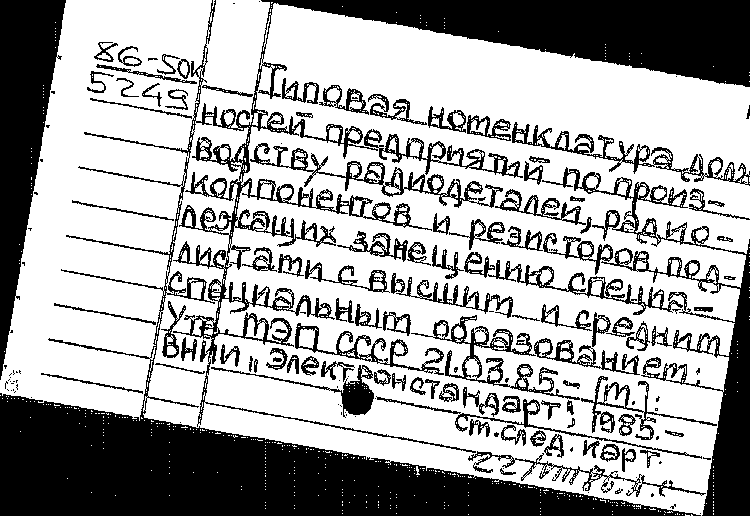 86-50к
5249
Типовая номенклатура долж
ностей предприятий по произ-
водству радиодеталей, радио-
компонентов и резисторов, под-
лежащих замещению специа-
листами с высшим и средним
специальным образованием:
Утв. МЭП СССР 21.03.85.- [М.]:
ВНИИ "Электронстандарт", 1985.-
см.след. карт.